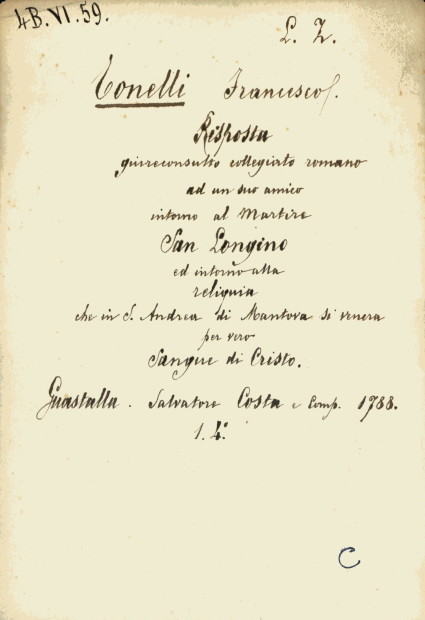 4B.VI.59.
L. Z.
Tonelli Francesco.
Risposta
giureconsulto collegiato romano
ad un suo amico
intorno al Martire
San Longino
ed intorno alla
reliquia
che in S. Andrea di Mantova si venera
per vero
Sangue di Cristo.
Guastalla. Salvatore Costa e Comp. 1788.
1. 4°
C